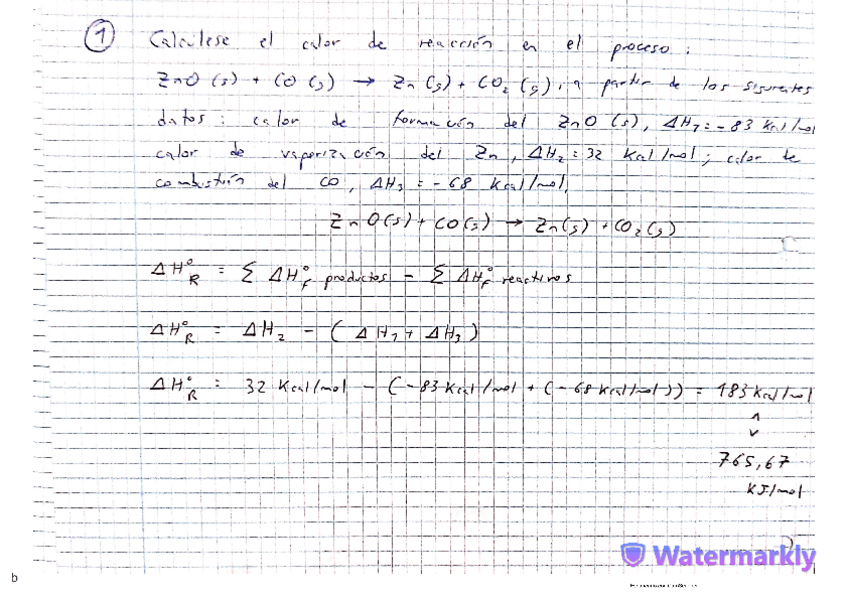 1 Calculese el calor de reacción en el proceso:
ZnO (s) + CO (g) → Zn (g) + CO₂ (g), a partir de los siguientes
datos: calor de formación del ZnO (s), ΔH₁ = -83 Kcal/mol
calor de vaporización del Zn, ΔH₂ = 32 Kcal/mol; calor de
combustión del CO, ΔH₃ = -68 Kcal/mol.
ZnO(s) + CO(g) → Zn(g) + CO₂(g)
ΔH°R = Σ ΔH°f productos - Σ ΔH°f reactivos
ΔH°R = ΔH₂ - (ΔH₁ + ΔH₃)
ΔH°R = 32 Kcal/mol - (-83 Kcal/mol + (-68 Kcal/mol)) = 183 Kcal/mol
765,67
KJ/mol
Watermarkly
b